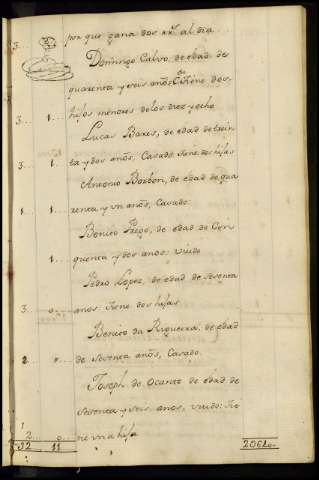 3... por que gana dos rrs. al dia
Domingo Calvo, de edad de
quarenta y seis años, Cdo. tiene dos
3... 1... hijos menores de los diez y ocho
Lucas Bares, de edad de trein
3.. 1... ta y dos años, Casado tiene dos hijas
Antonio Borbon, de edad de qua
1... 1... renta y un años, Casado.
Benito Prego, de edad de Cin
1... quenta y dos años: viudo
Pedro Lopez, de edad de Sesenta
3... 0... anos: tiene dos hijas
Benito da Riqueixa, de edad
2... 0... de Sesenta años, Casado.
Joseph do Ocanto de edad de
Sesenta y seis, anos, viudo: tie
2... 0... ne una hija
32 11 2062..